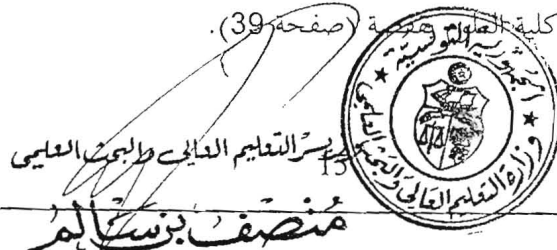 كلية العلوم بقفصة (صفحة 39).
الجمهورية التونسية
وزارة التعليم العالي والبحث العلمي
وزير التعليم العالي والبحث العلمي
15
منصف بن سالم